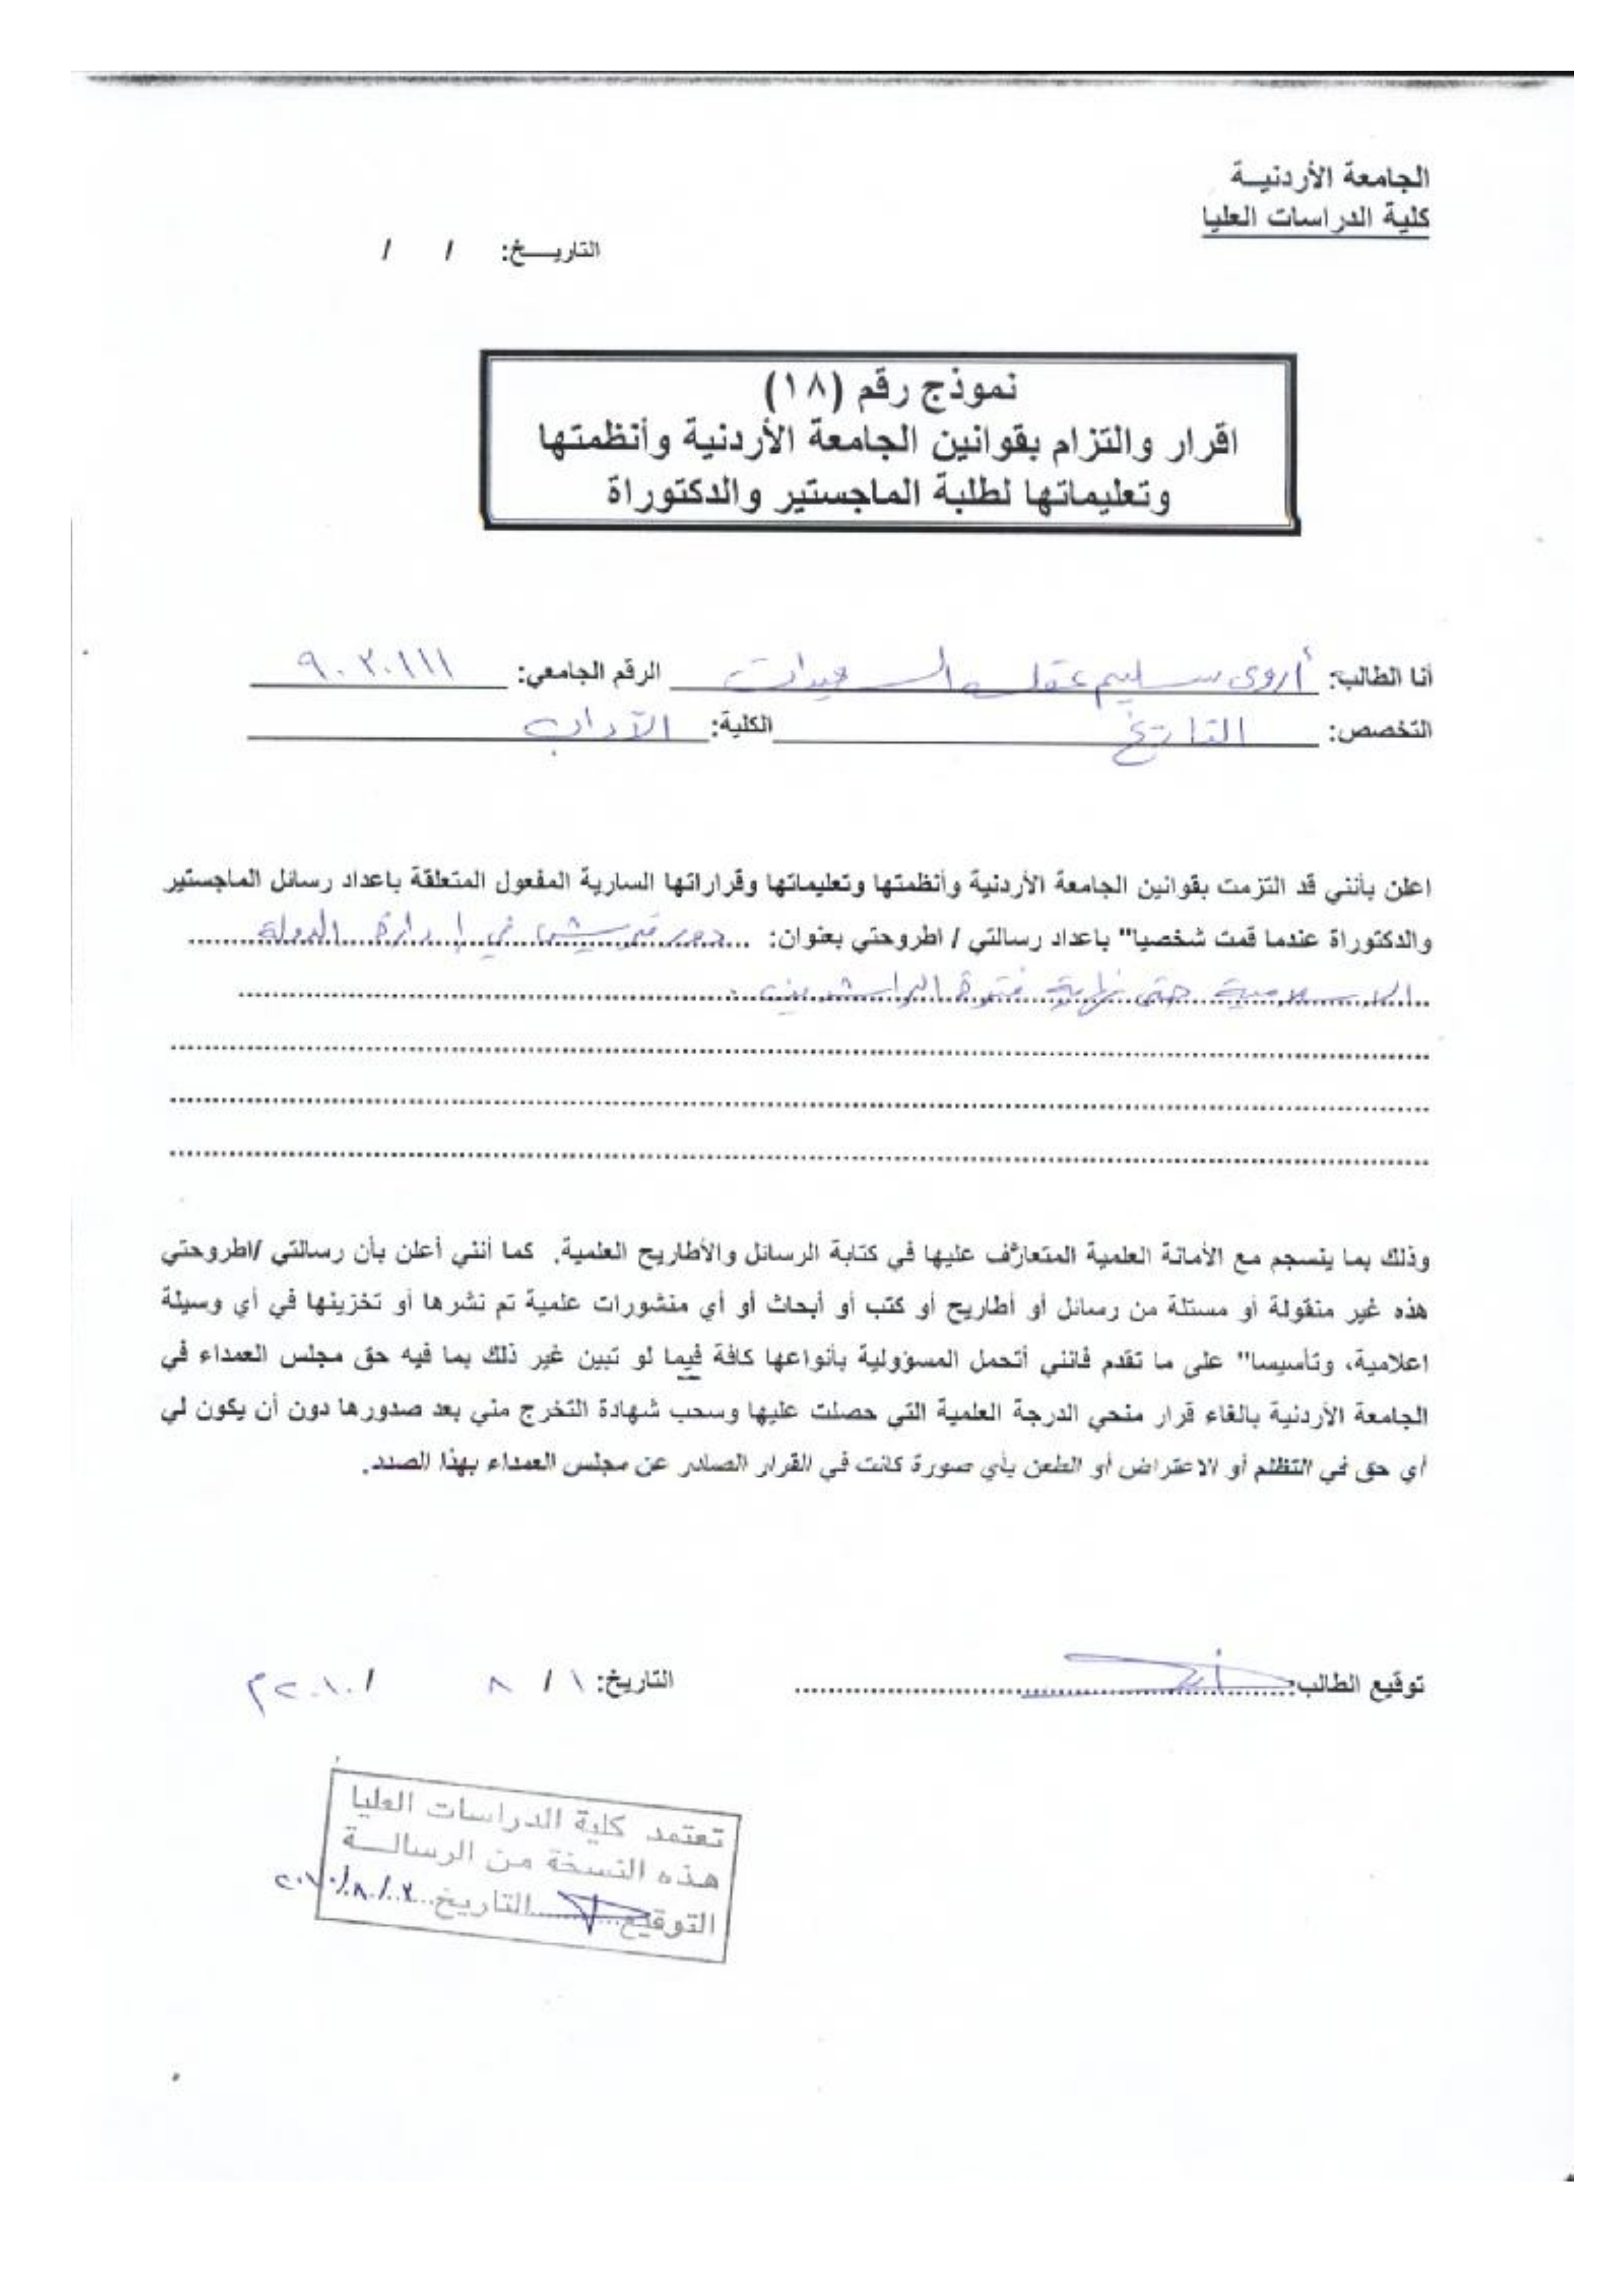 الجامعة الأردنيـة
كلية الدراسات العليا
التاريـــخ: / /
نموذج رقم (١٨)
اقرار والتزام بقوانين الجامعة الأردنية وأنظمتها
وتعليماتها لطلبة الماجستير والدكتوراة
أنا الطالب: أروى سليم عقله السعيدات الرقم الجامعي: ٩٠٢٠١١١
التخصص: التاريخ الكلية: الآداب
اعلن بأنني قد التزمت بقوانين الجامعة الأردنية وأنظمتها وتعليماتها وقراراتها السارية المفعول المتعلقة باعداد رسائل الماجستير
والدكتوراة عندما قمت شخصيا" باعداد رسالتي / اطروحتي بعنوان: دور قريش في إدارة الدولة
الإسلامية حتى نهاية فترة الراشدين.
وذلك بما ينسجم مع الأمانة العلمية المتعارف عليها في كتابة الرسائل والأطاريح العلمية. كما أنني أعلن بأن رسالتي /اطروحتي
هذه غير منقولة أو مستلة من رسائل أو أطاريح أو كتب أو أبحاث أو أي منشورات علمية تم نشرها أو تخزينها في أي وسيلة
اعلامية، وتأسيسا" على ما تقدم فانني أتحمل المسؤولية بأنواعها كافة فيما لو تبين غير ذلك بما فيه حق مجلس العمداء في
الجامعة الأردنية بالغاء قرار منحي الدرجة العلمية التي حصلت عليها وسحب شهادة التخرج مني بعد صدورها دون أن يكون لي
أي حق في التظلم أو الاعتراض أو الطعن بأي صورة كانت في القرار الصادر عن مجلس العمداء بهذا الصدد.
توقيع الطالب: التاريخ: ١ / ٨ / ٢٠١٠م
تعتمد كلية الدراسات العليا
هذه النسخة من الرسالــة
التوقيع التاريخ ٢/٨/٢٠١٠